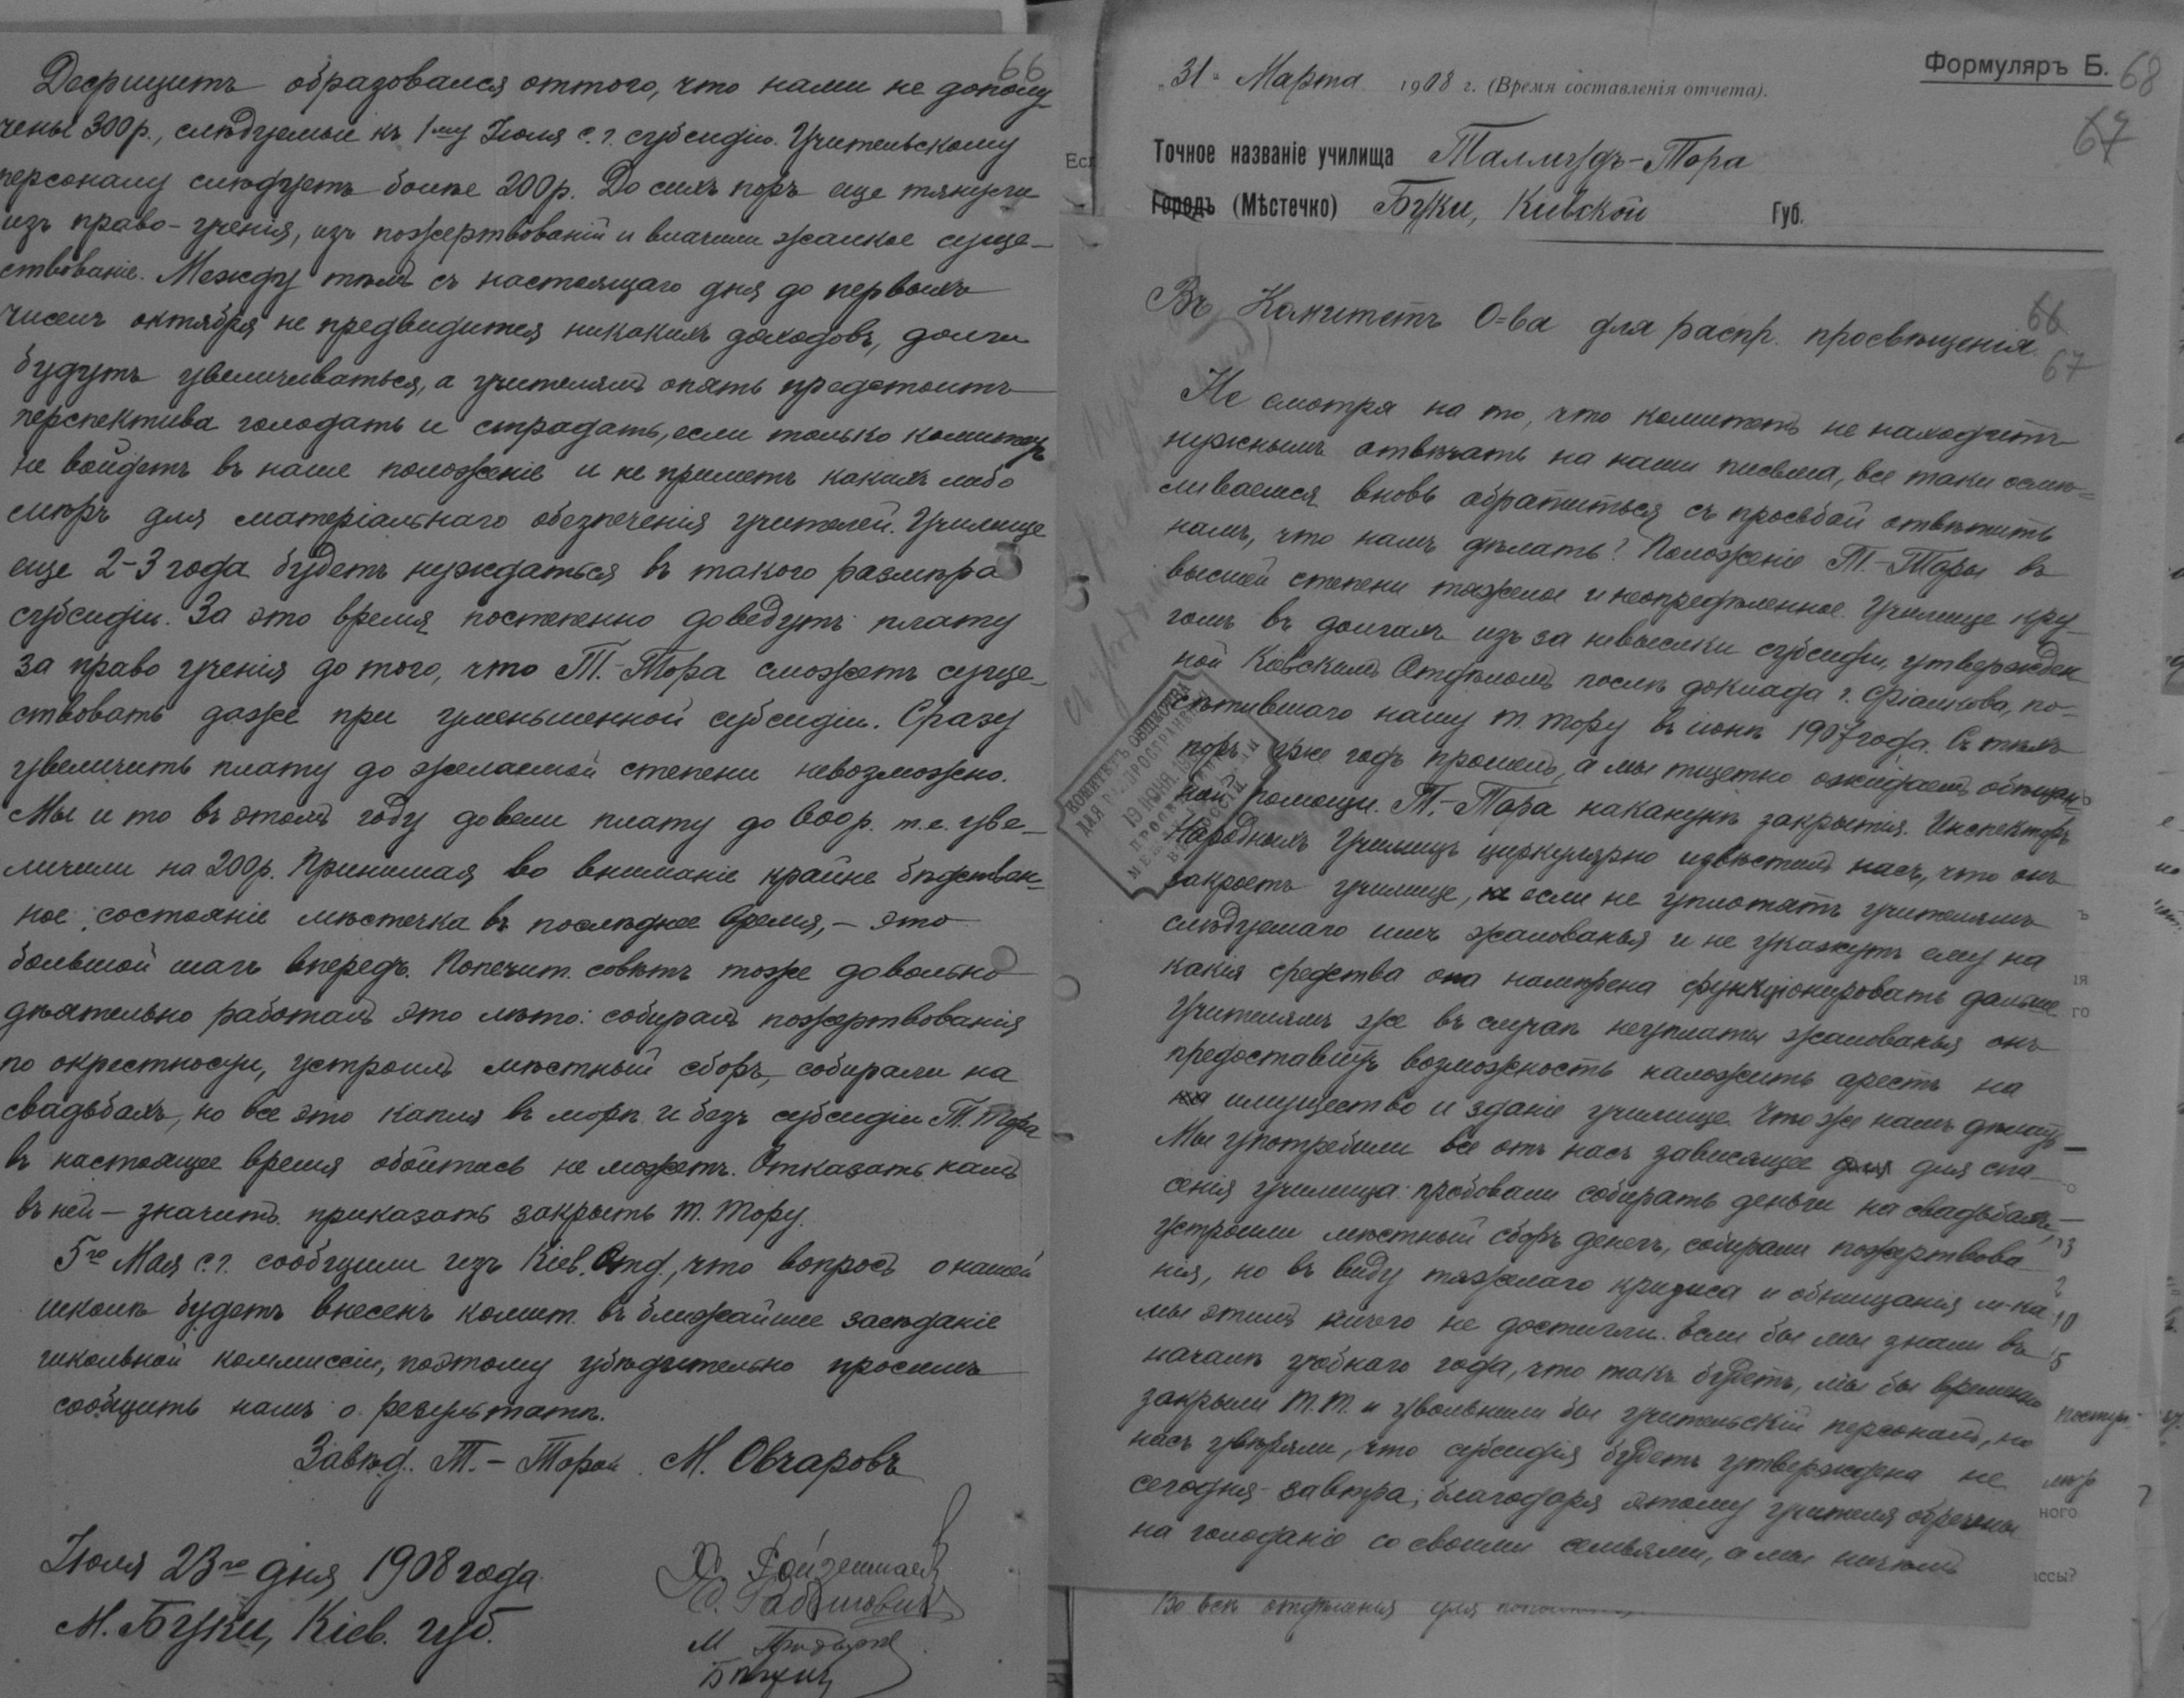 66
Дефицитъ образовался оттого, что нами не дополу
чены 300 р., слѣдуемые къ 1му Іюля с. г. субсидіи. Учительскому
персоналу слѣдуетъ болѣе 200р. До сихъ поръ еще тянули
изъ право-ученія, изъ пожертвованій и влачили жалкое суще-
ствованіе. Между тѣмъ съ настоящаго дня до первыхъ
чиселъ октября не предвидится никакихъ доходовъ, долги
будутъ увеличиваться, а учителямъ опять предстоитъ
перспектива голодать и страдать, если только комитетъ
не войдетъ въ наше положеніе и не приметъ какихъ либо
мѣръ для матеріальнаго обезпеченія учителей. Училище
еще 2-3 года будетъ нуждаться въ такого размѣра
субсидіи. За это время постепенно доведутъ плату
за право ученія до того, что Т.-Тора сможетъ суще-
ствовать даже при уменьшенной субсидіи. Сразу
увеличить плату до желаемой степени невозможно.
Мы и то въ этомъ году довели плату до 600р. т.е. уве-
личили на 200р. Принимая во вниманіе крайне бѣдствен-
ное состояніе мѣстечка въ послѣднее время, - это
большой шагъ впередъ. Попечит. совѣтъ тоже довольно
дѣятельно работалъ это лѣто: собиралъ пожертвованія
по окрестности, устроилъ мѣстный сборъ, собирали на
свадьбахъ, но все это капля въ морѣ и безъ субсидіи Т. Тора
въ настоящее время обойтись не можетъ. Отказать намъ
въ ней - значитъ приказать закрыть Т. Тору.
5го Мая с. г. сообщили изъ Кіев. Отд., что вопросъ о нашей
школѣ будетъ внесенъ комит. въ ближайшее засѣданіе
школьной коммиссіи, поэтому убѣдительно просимъ
сообщить намъ о результатѣ.
Завѣд. Т.-Торой М. Овчаровъ
Іюля 23го дня 1908 года.
М. Буки, Кіев. губ.
Рабиновичъ
Формуляръ Б. 68
67
"31" Марта 1908 г. (Время составленія отчета).
Точное названіе училища Талмудъ-Тора
Городъ (Мѣстечко) Буки, Кіевской Губ.
66
67
Въ Комитетъ О-ва для распр. просвѣщенія.
Не смотря на то, что комитетъ не находитъ
нужнымъ отвѣчать на наши письма, все таки осмѣ-
ливаемся вновь обратиться съ просьбой отвѣтить
намъ, что намъ дѣлать? Положеніе Т.-Торы въ
высшей степени тяжелое и неопредѣленное. Училище кру-
гомъ въ долгахъ изъ за невысылки субсидіи, утвержден
ной Кіевскимъ Отдѣломъ послѣ доклада г. Фіалкова, по-
сѣтившаго нашу т. тору въ іюнѣ 1907 года. Съ тѣхъ
поръ уже годъ прошелъ, а мы тщетно ожидаемъ обѣщан-
ной помощи. Т.-Тора наканунѣ закрытія. Инспекторъ
Народныхъ Училищъ циркулярно извѣстилъ насъ, что онъ
закроетъ училище, если не уплотятъ учителямъ
слѣдуемаго имъ жалованья и не укажутъ ему на
какія средства она намѣрена функціонировать дальше
Учителямъ же въ случаѣ неуплаты жалованья онъ
предоставитъ возможность наложить арестъ на
имущество и зданіе училище. Что же намъ дѣлать
Мы употребили все отъ насъ зависящее для спа-
сенія училища: пробовали собирать деньги на свадьбахъ,
устроили мѣстный сборъ денегъ, собирали пожертвова-
нія, но въ виду тяжелаго кризиса и обнищанія м-ка
мы этимъ ничего не достигли. Если бы мы знали въ
началѣ учебнаго года, что такъ будетъ, мы бы временно
закрыли Т.Т. и увольнили бы учительскій персоналъ, но
насъ увѣряли, что субсидія будетъ утверждена не
сегодня-завтра; благодаря этому учителя обречены
на голоданіе со своими семьями, а мы ничѣмъ
КОМИТЕТЪ ОБЩЕСТВА
ДЛЯ РАСПРОСТРАНЕНІЯ
19 ІЮНЯ
ВЪ РОССІИ
Во всѣ отдѣленія для